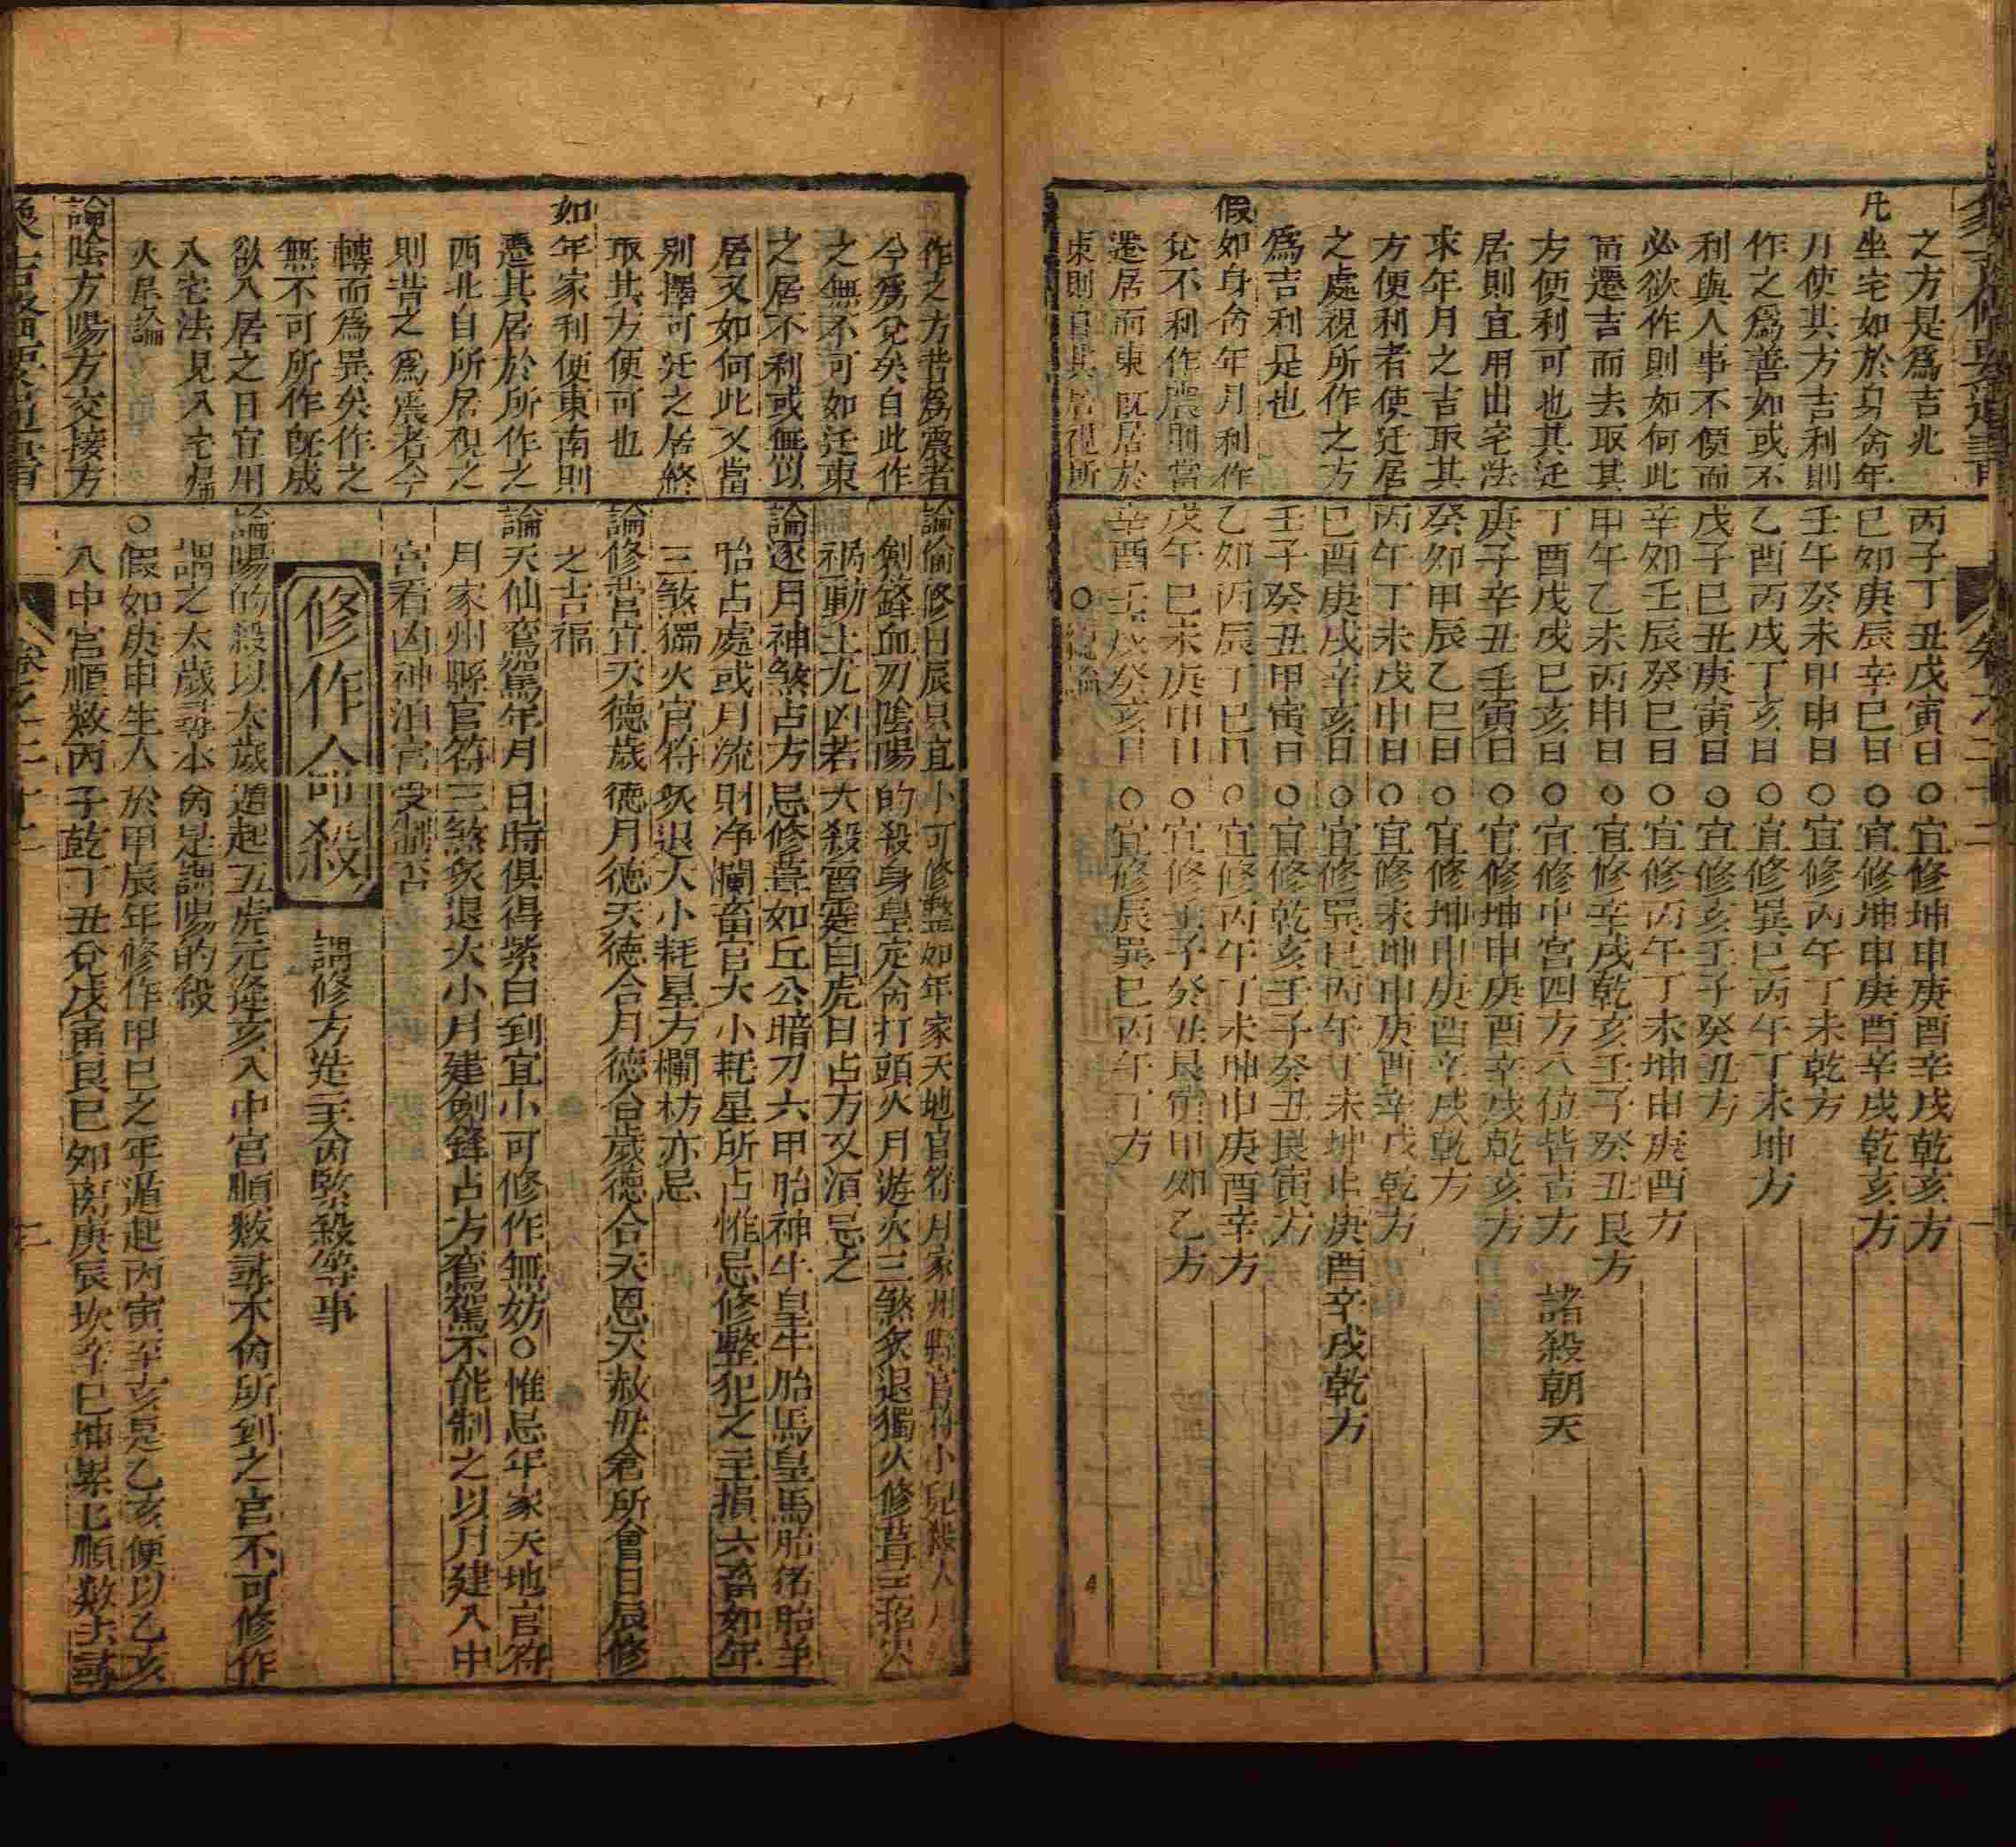 之方是爲吉兆
凡坐宅如於身命年
月使其方吉利則
作之爲善如或不
利與人事不便而
必欲作則如何此
當遷吉而去取其
方便利可也其迁
居則宜用出宅法
求年月之吉取其
方便利者使迁居
之處視所作之方
爲吉利是也
假如身命年月利作
兌不利作震則當
遷居而東既居於
東則自其居視所
丙子丁丑戊寅日○宜修坤申庚酉辛戌乾亥方
己卯庚辰辛巳日○宜修坤申庚酉辛戌乾亥方
壬午癸未甲申日○宜修丙午丁未乾方
乙酉丙戌丁亥日○宜修巽巳丙午丁未坤方
戊子己丑庚寅日○宜修亥壬子癸丑方
辛卯壬辰癸巳日○宜修丙午丁未坤申庚酉方
甲午乙未丙申日○宜修辛戌乾亥壬子癸丑艮方
丁酉戊戌己亥日○宜修中宮四方八位皆吉方 諸殺朝天
庚子辛丑壬寅日○宜修坤申庚酉辛戌乾亥方
癸卯甲辰乙巳日○宜修坤申庚酉辛戌乾方
丙午丁未戊申日○宜修未坤申庚酉辛戌乾方
己酉庚戌辛亥日○宜修巽巳丙午丁未坤申庚酉辛戌乾方
壬子癸丑甲寅日○宜修乾亥壬子癸丑艮寅方
乙卯丙辰丁巳日○宜修丙午丁未坤申庚酉辛方
戊午己未庚申日○宜修壬子癸丑艮寅甲卯乙方
辛酉壬戌癸亥日○宜修辰巽巳丙午丁方
○總論
作之方昔爲震者
今爲兌矣自此作
之無不可如迁東
之居不利或無以
居又如何此又當
別擇可迁之居終
取其方便可也
如年家利便東南則
遷其居於所作之
西北自所居視之
則昔之爲震者今
轉而爲巽矣作之
無不可所作旣成
欲入居之日宜用
入宅法見入宅歸
火星論
論陰方陽方交接方
論偷修日辰只宜小可修整如年家天地官符月家州縣官符小兒殺
劍鋒血刃陰陽的殺身皇定命打頭火月遊火三煞炙退獨火修葺主招災
禍動土尤凶若大殺雷霆白虎日占方又須忌之
論逐月神煞占方忌修葺如丘公暗刀六甲胎神牛皇牛胎馬皇馬胎猪胎羊
胎占處或月流財净欄畜官大小耗星所占惟忌修整犯之主損六畜如年
三煞獨火官符炙退大小耗星方欄枋亦忌
論修營宜天德歲德月德天德合月德合歲德合天恩天赦毋倉所會日辰修
之吉福
論天仙鸞駕年月日時俱得紫白到宜小可修作無妨○惟忌年家天地官符
月家州縣官符三煞炙退大小月建劍鋒占方鸞駕不能制之以月建入中
宮看凶神泊宮受制否
修作命殺 謂修方造主命緊殺等事
論陽的殺以太歲遁起五虎元逢亥入中宮順數尋本命所到之宮不可修作
謂之太歲尋本命是謂陽的殺
○假如庚申生人於甲辰年修作甲己之年遁起丙寅至亥是乙亥便以乙亥
入中宮順數丙子乾丁丑兌戊寅艮己卯离庚辰坎辛巳坤累七順數去尋